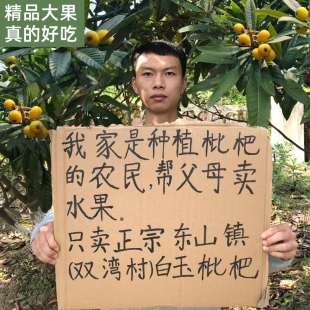 精品大果
真的好吃
我家是种植枇杷
的农民,帮父母卖
水果。
只卖正宗东山镇
(双湾村)白玉枇杷